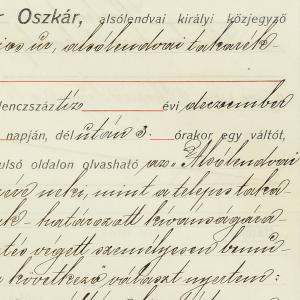 Oszkár, alsólendvai királyi közjegyző
úr, alsólendvai takarék-
lenczszáz tíz évi deczember
napján, dél után 3. órakor egy váltót,
ulsó oldalon glvasható „az" Alsólendvai
neki, mint a telepes taka
k- határozott kivánságára
végett személyesen bemu-
következő választ nyertem: